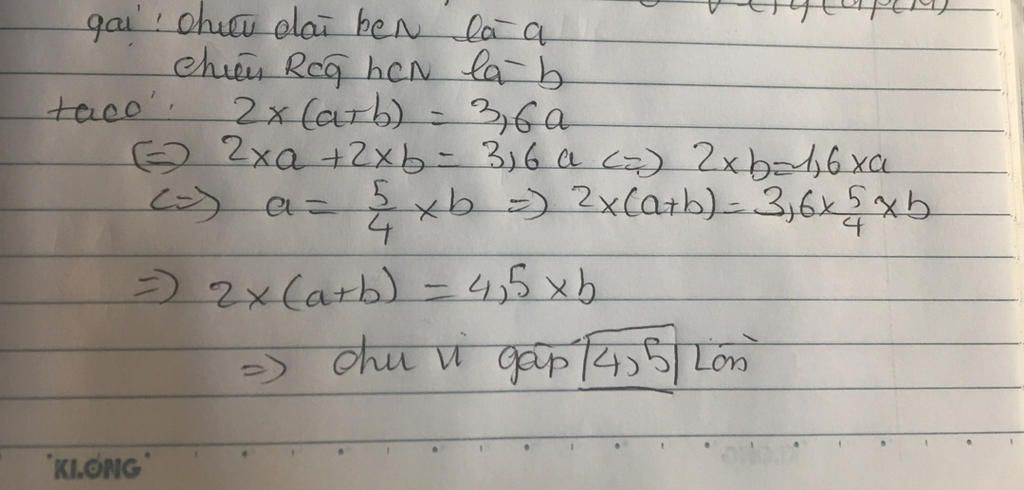 gọi: chiều dài hcN là a
chiều Rộg hcN là b
ta có: 2×(a+b) = 3,6a
<=> 2×a + 2×b = 3,6 a <=> 2×b=1,6×a
<=> a = 5/4 ×b => 2×(a+b)=3,6×5/4×b
=> 2×(a+b) = 4,5×b
=> chu vi gấp 4,5 Lần
KLONG